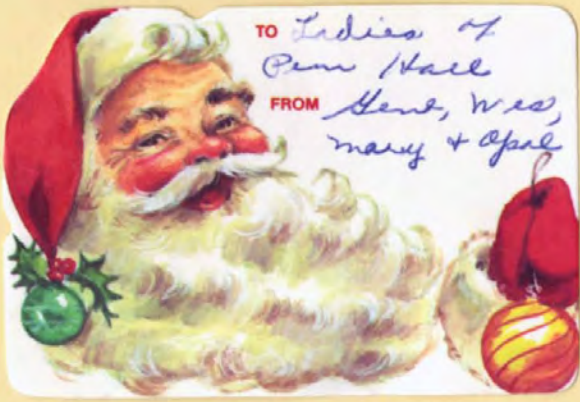 TO Ladies of
Penn Hall
FROM Gene, Wes,
Mary + Opal